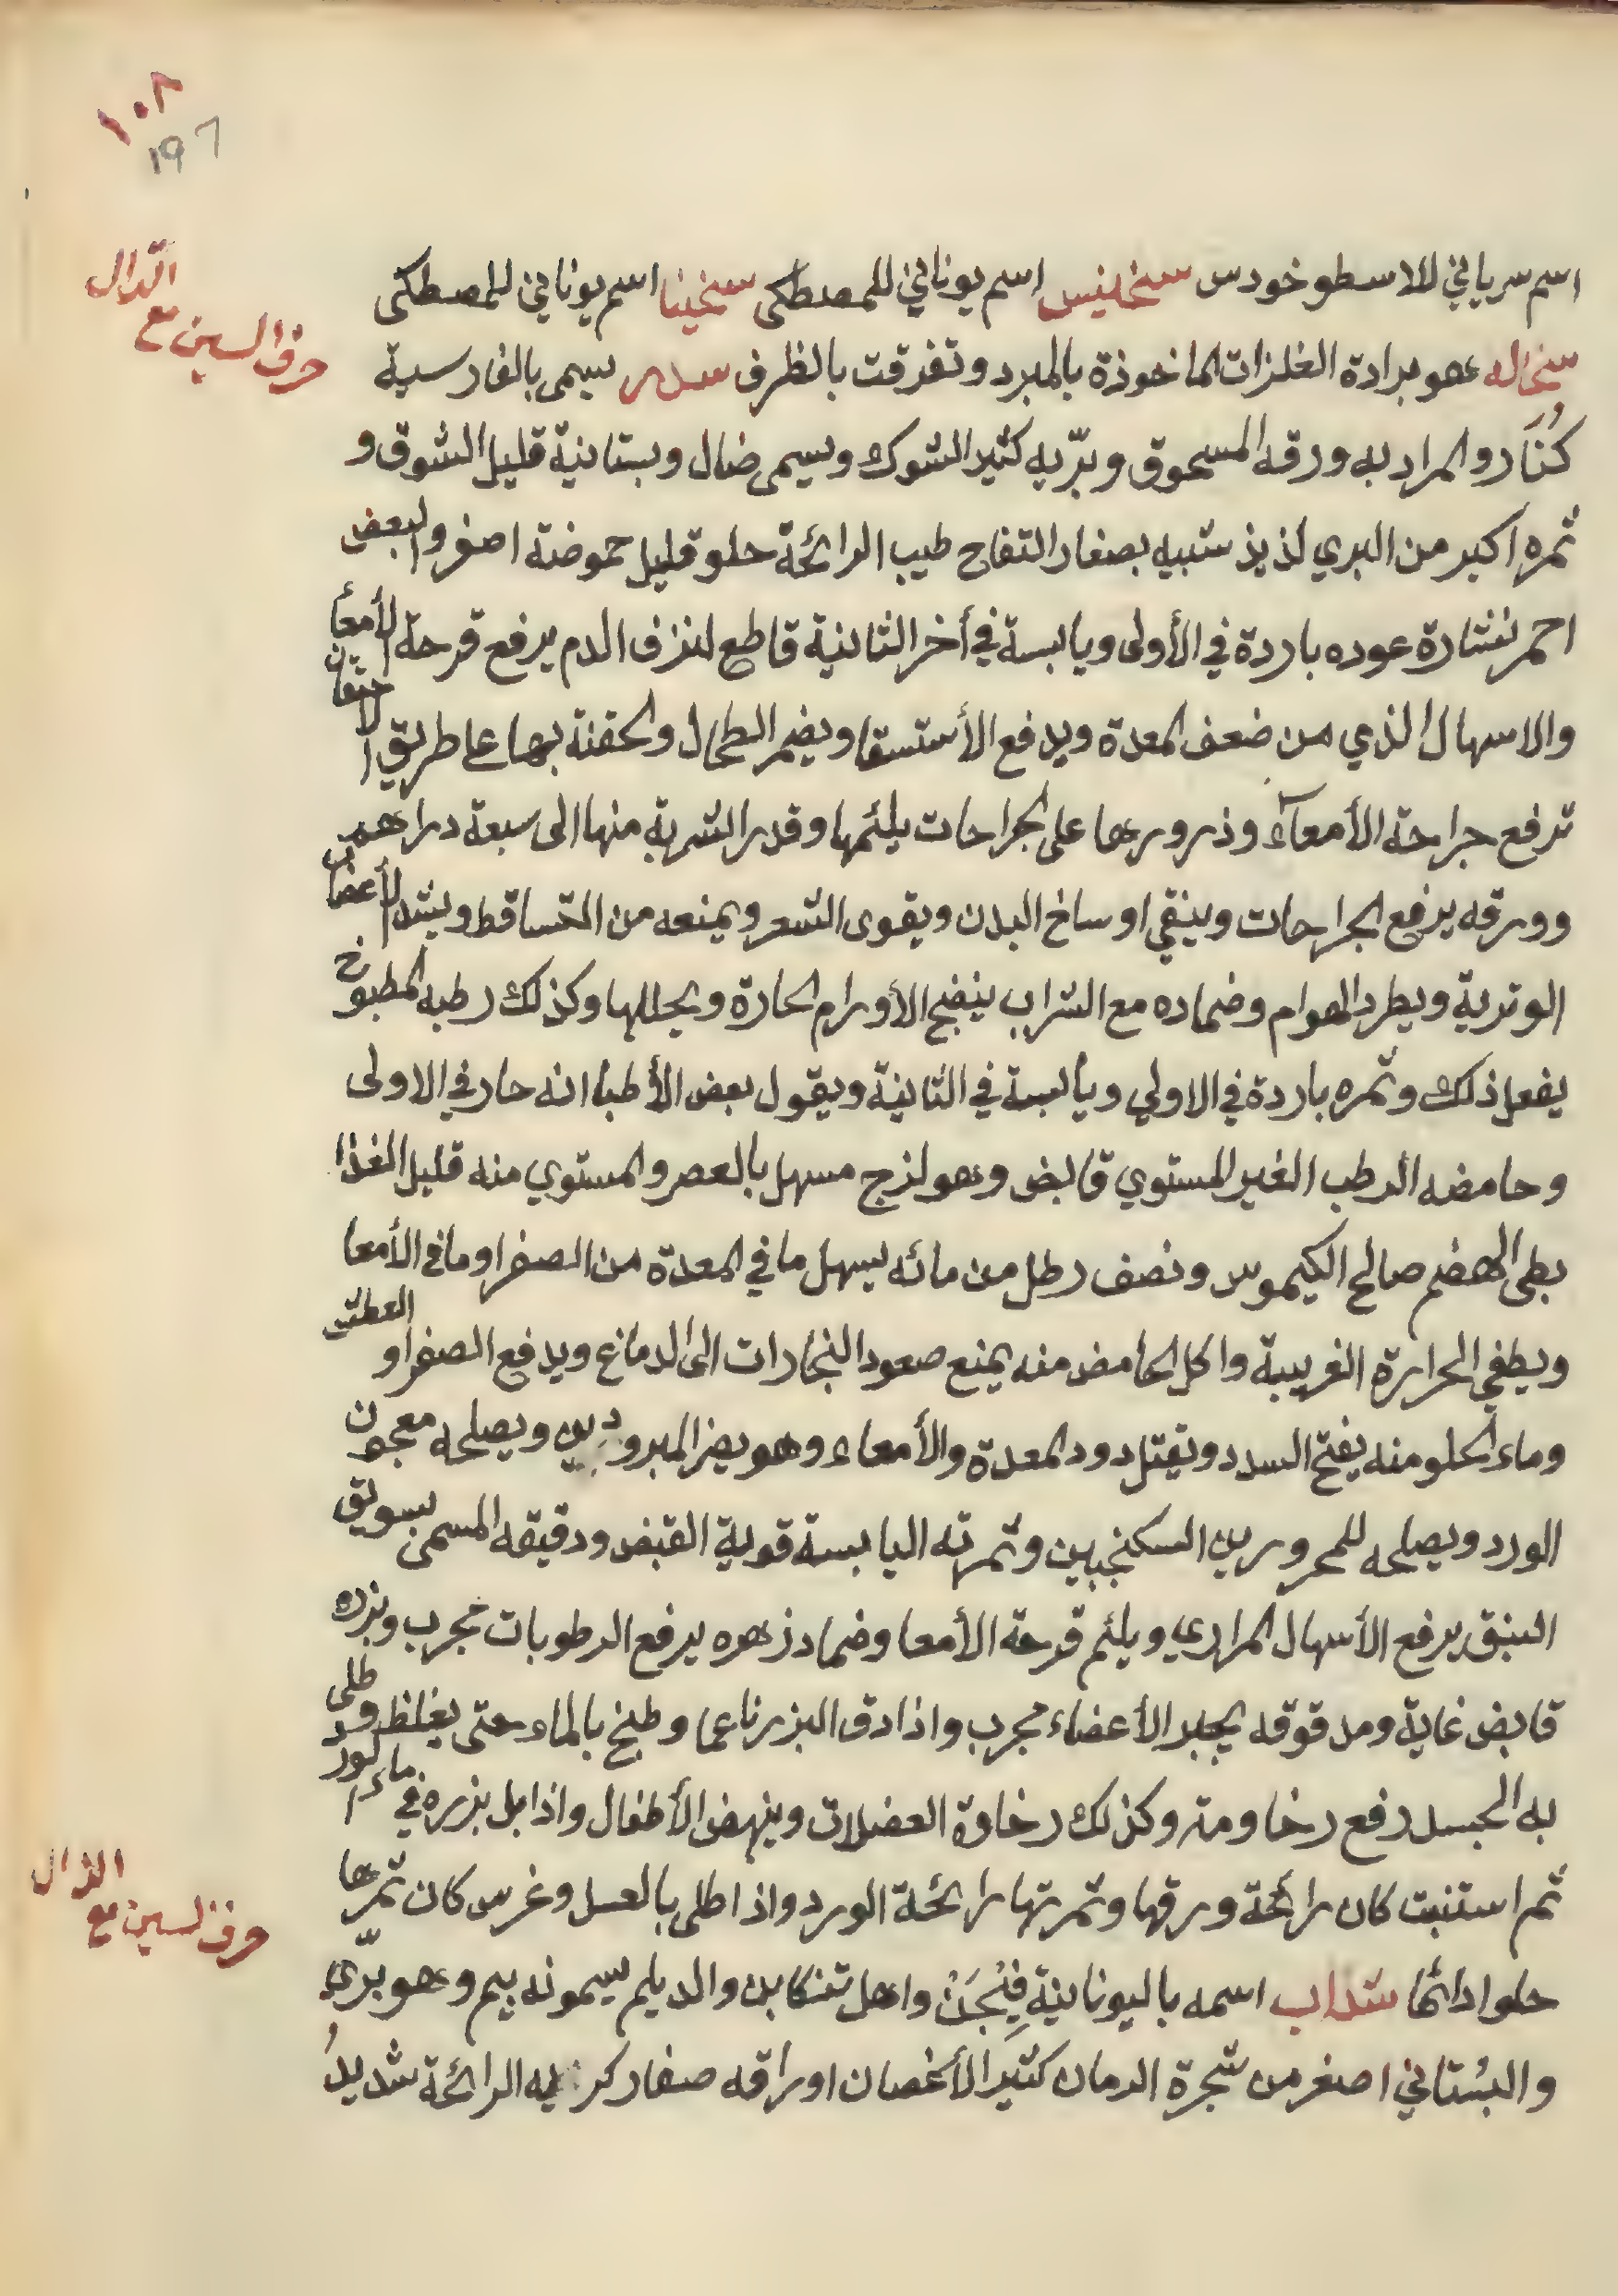 ١٠٨
١٩٦
حرف السين مع الدال
اسم سرياني للاسطوخودس سخانيس اسم يوناني للمصطكى سخينا اسم يوناني للمصطكى
سخاله هو برادة الفلزات الماخوذة بالمبرد وتفرقت بالظرف سدر يسمى بالفارسية
كُنَار والمراد به ورقه المسحوق وبرّيه كثير الشوك ويسمى ضال وبستانية قليل الشوق و
ثمره اكبر من البري لذيذ شبيه بصغار التفاح طيب الرائحة حلو قليل حموضة اصفر والبعض
احمر نشارة عوده باردة في الأولى ويابسة في أخر الثانية قاطع لنزف الدم يرفع قرحة الأمعأ
والاسهال الذي من ضعف المعدة ويدفع الأستسقا ويضمر الطحال والحقنة بها عا طريق الاحتقان
ترفع جراحة الأمعآء وذرورها على الجراحات يلئمها وقدر الشربة منها الى سبعة دراهم
وورقه يرفع الجراحات وينقي اوساخ البدن ويقوى الشعر ويمنعه من التساقط ويشد الأعضاء
الوترية ويطرد الهوام وضماده مع الشراب ينضج الأورام الحارة ويحللها وكذلك رطبه المطبوخ
يفعل ذلك وثمره باردة في الاولي ويابسة في الثانية ويقول بعض الأطبا انه حار في الاولى
وحامضه الرطب الغير المستوي قابض وهو لزج مسهل بالعصر والمستوي منه قليل الغذا
بطى الهضم صالح الكيموس ونصف رطل من مائه يسهل ما في المعدة من الصفرا وما في الأمعا
ويطفي الحرارة الغريبة واكل الحامض منه يمنع صعود البخارات الى الدماغ ويدفع الصفرا و العطش
وماء الحلو منه يفتح السدد ويقتل دود المعدة والأمعاء وهو يضر المبرودين ويصلحه معجون
الورد ويصلحه للمحرورين السكنجبين وثمرته اليابسة قوية القبض ودقيقه المسمى بسويق
النبق يرفع الأسهال المراري ويلئم قرحة الأمعا وضماد زهره يرفع الرطوبات مجرب وبزره
قابض غاية ومدقوقه يجبر الأعضاء مجرب واذا دق البزر ناعما وطبخ بالماء حتى يغلظ وطلى
به الجسد رفع رخاومته وكذلك رخاوة العضلات وينهض الأطفال واذا بل بزره في ماء الورد
ثم استنبت كان رائحة ورقها وثمرتها رائحة الورد واذا طلى بالعسل وغرس كان ثمرها
حرف السين مع الذال
حلوا دائما سَداب اسمه باليونانية فِيْجَنْ واهل تنكابن والديلم يسمونه پيم وهو برّي
والبُستاني اصغر من شجرة الرمان كثير الأغصان اوراقه صغار كريه الرائحة شديدُ